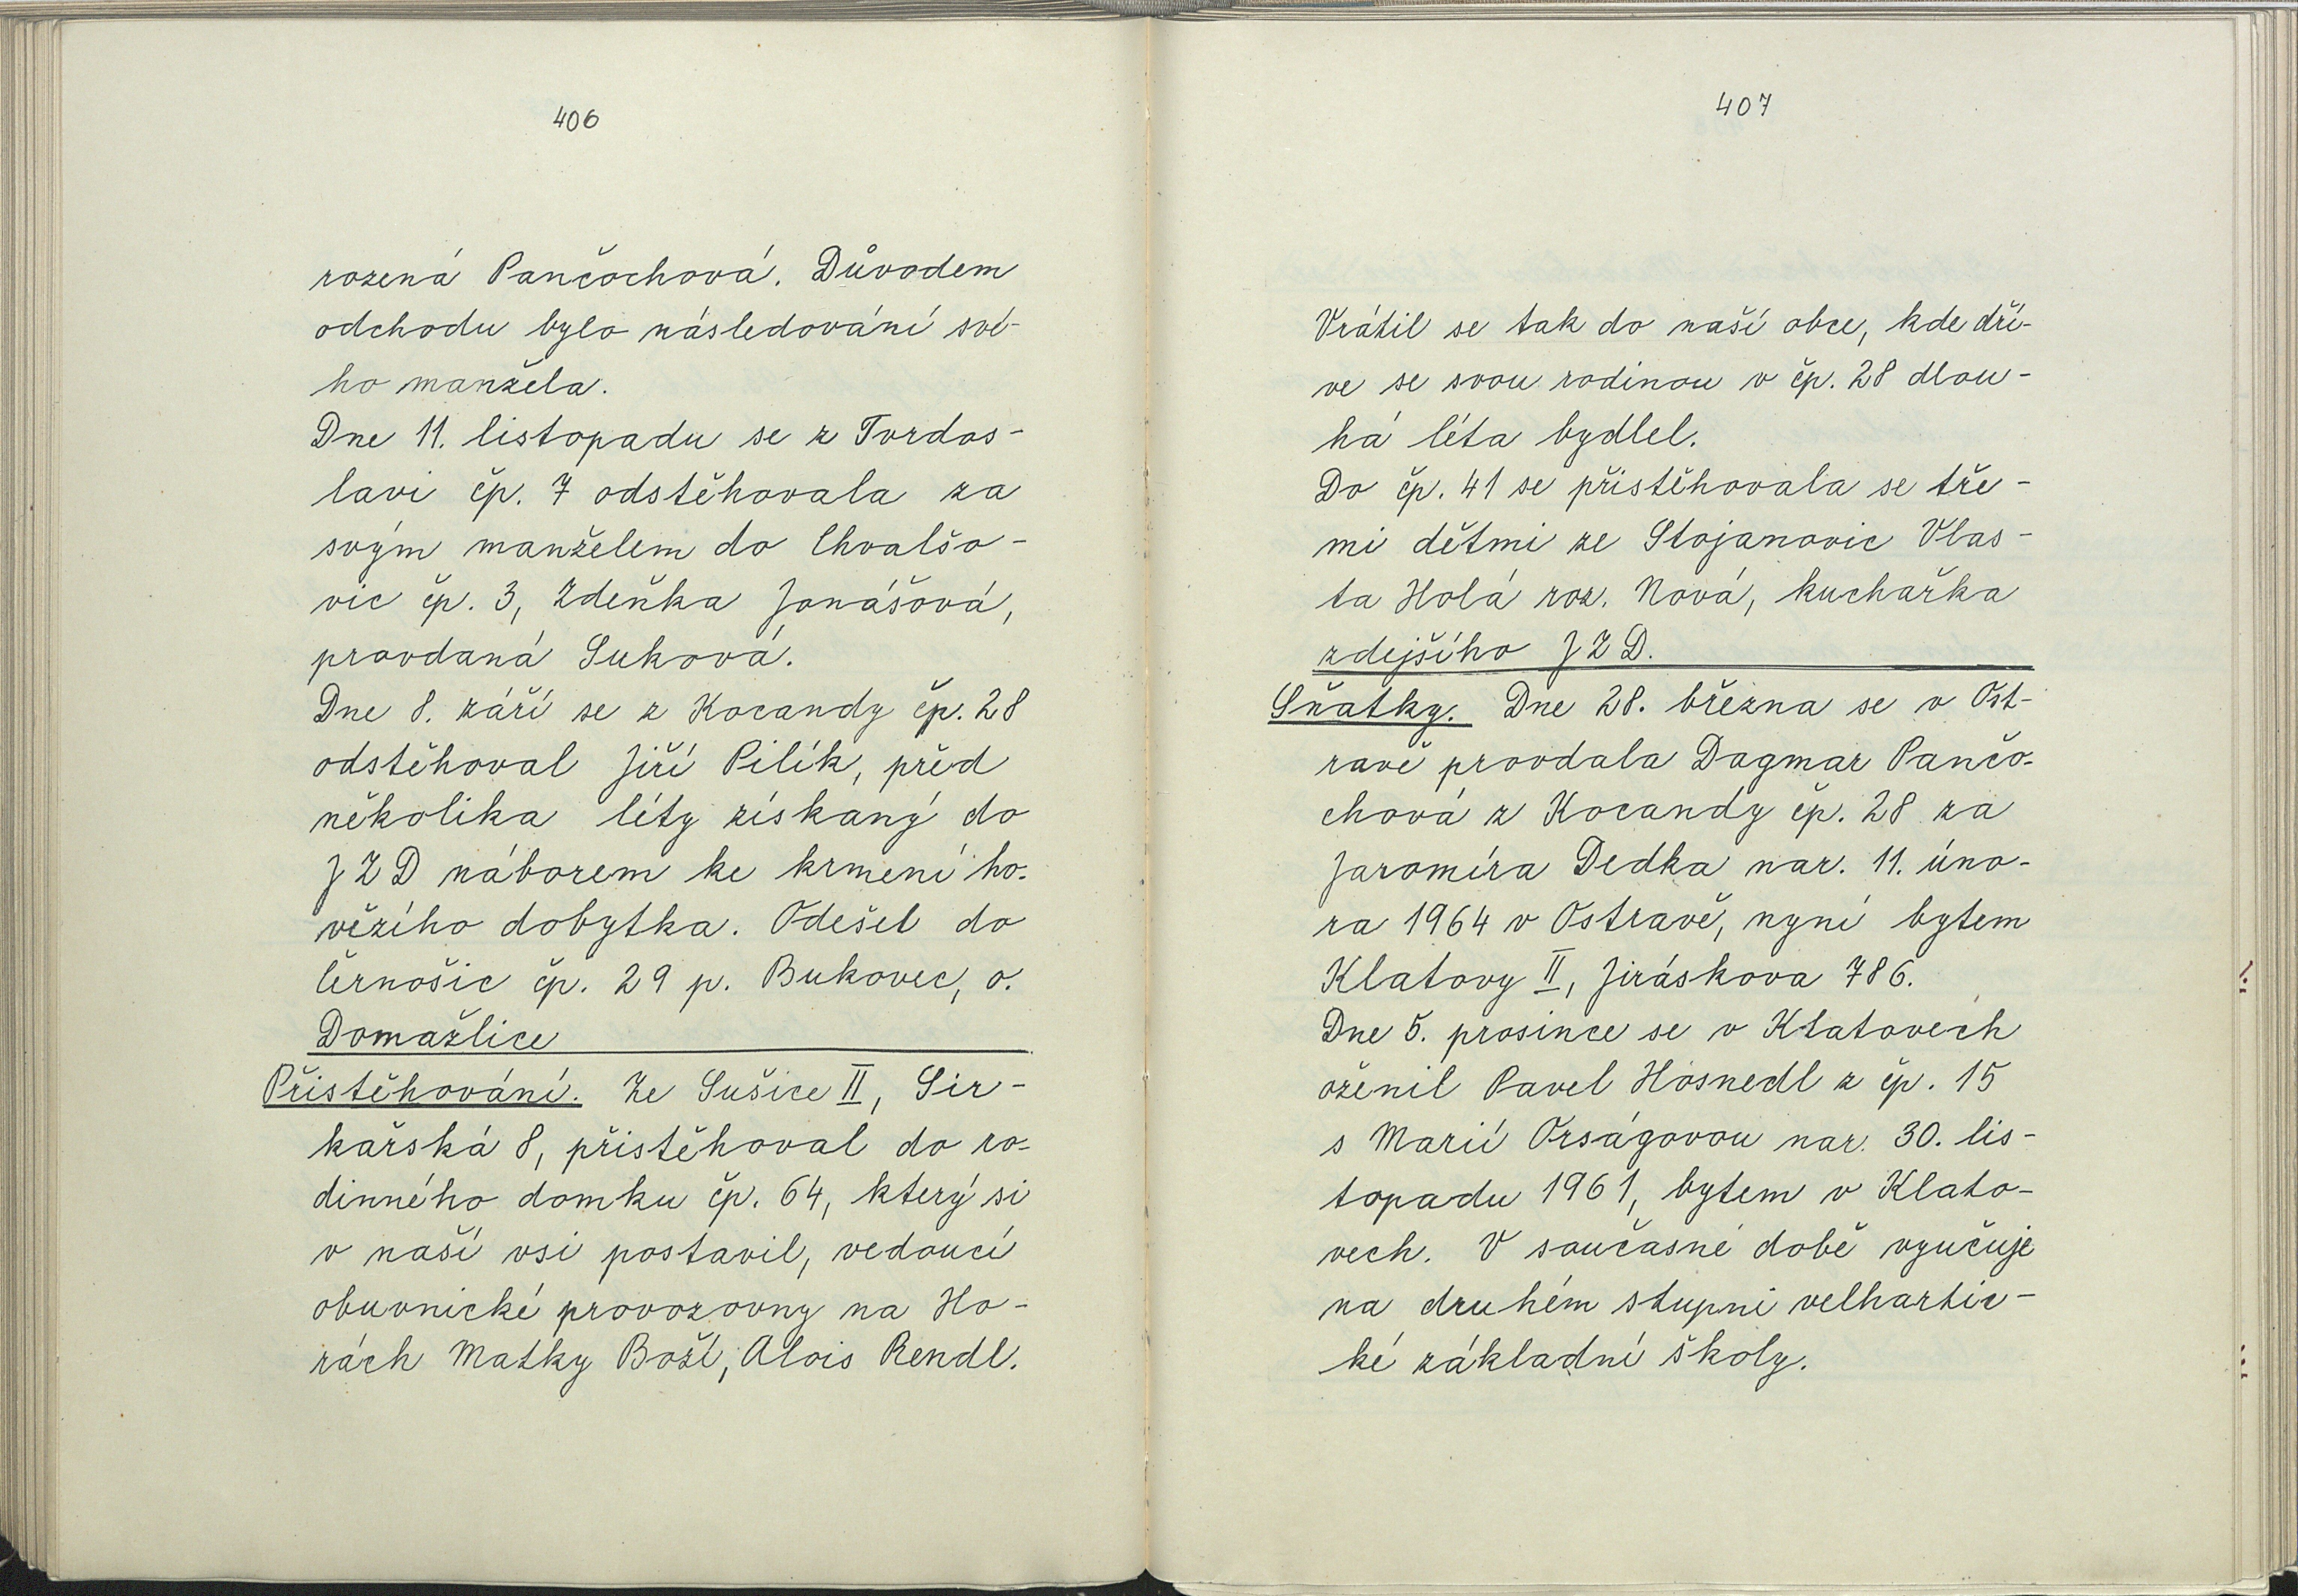 406
rozená Pančochová. Důvodem
odchodu bylo následování své-
ho manžela.
Dne 11. listopadu se z Tvrdos-
lavi čp. 7 odstěhovala za
svým manželem do Chvalšo-
vic čp. 3, Zdeňka Jonášová,
provdaná Suková.
Dne 8. září se z Kocandy čp. 28
odstěhoval Jiří Pilík, před
několika léty získaný do
JZD náborem ke krmení ho-
vězího dobytka. Odešel do
Černošic čp. 29 p. Bukovec, o.
Domažlice
Přistěhování. Ze Sušice II, Sir-
kařská 8, přistěhoval do ro-
dinného domku čp. 64, který si
v naší vsi postavil, vedoucí
obuvnické provozovny na Ho-
rách Matky Boží, Alois Rendl.
407
Vrátil se tak do naší obce, kde dří-
ve se svou rodinou v čp. 28 dlou-
há léta bydlel.
Do čp. 41 se přistěhovala se tře-
mi dětmi ze Stojanovic Vlas-
ta Holá roz. Nová, kuchařka
zdejšího JZD.
Sňatky. Dne 28. března se v Ost-
ravě provdala Dagmar Pančo-
chová z Kocandy čp. 28 za
Jaromíra Dedka nar. 11. úno-
ra 1964 v Ostravě, nyní bytem
Klatovy II, Jiráskova 786.
Dne 5. prosince se v Klatovech
oženil Pavel Hosnedl z čp. 15
s Marií Orságovou nar. 30. lis-
topadu 1961, bytem v Klato-
vech. V současné době vyučuje
na druhém stupni velhartic-
ké základní školy.